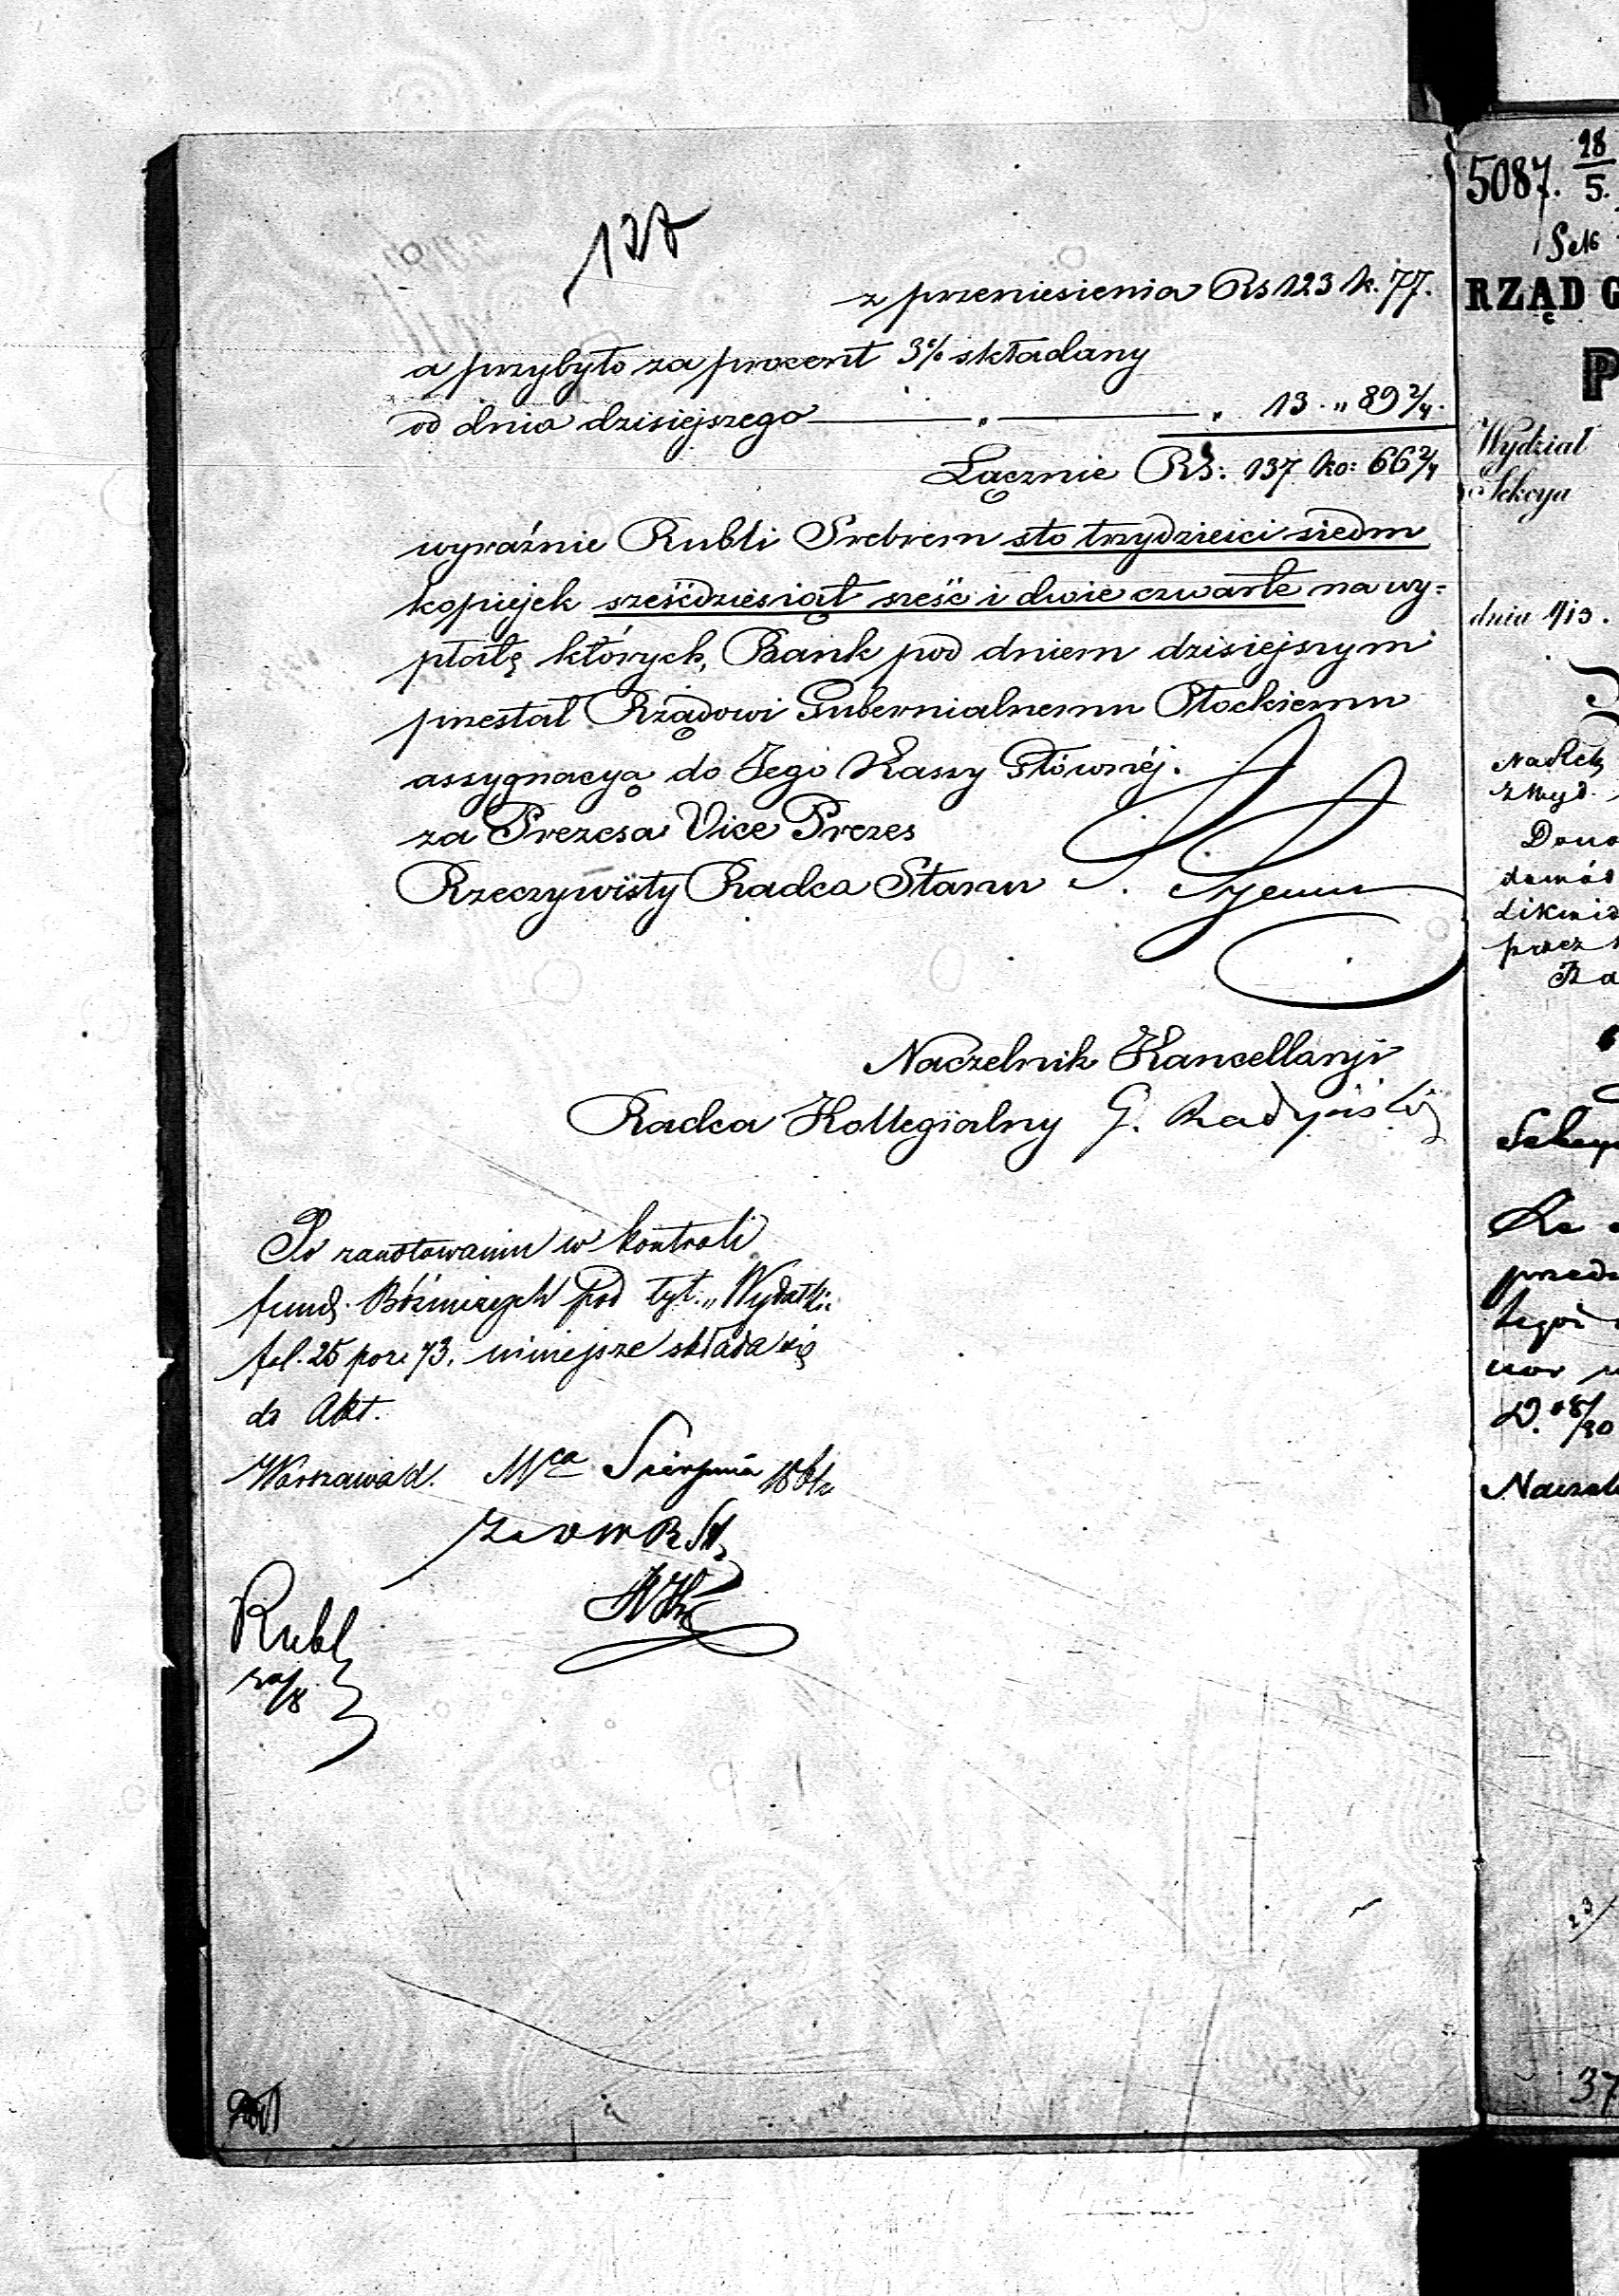 127
z przeniesienia Rs 123 k. 77.
a przybyło za procent 3% składany
od dnia dzisiejszego — „ — „ 13 „ 89 2/4.
Łącznie RS: 137 ko: 66 2/4
wyraźnie Rubli Srebrem sto trzydzieści siedm
kopiejek sześćdziesiąt sześć i dwie czwarte na wy=
płatę których, Bank pod dniem dzisiejszym
przesłał Rządowi Gubernialnemu Płockiemu
assygnacyą do Jego Kassy Głównéj.
za Prezesa Vice Prezes
Rzeczywisty Radca Stanu
Naczelnik Kancellaryi
Radca Kollegialny G.
Po zanotowaniu w kontroli
fund. Bóżniczych pod tyt. „Wydatki"
fol. 25 poz. 73. niniejsze składa się
do Akt.
Warszawa d. Mca Sierpnia
Rubl
5087. 28/5.
RZĄD G
P
Wydział
Sekcya
dnia 1/13.
Dono
przez
Sekcy
przed
tegoż
Naczel
37